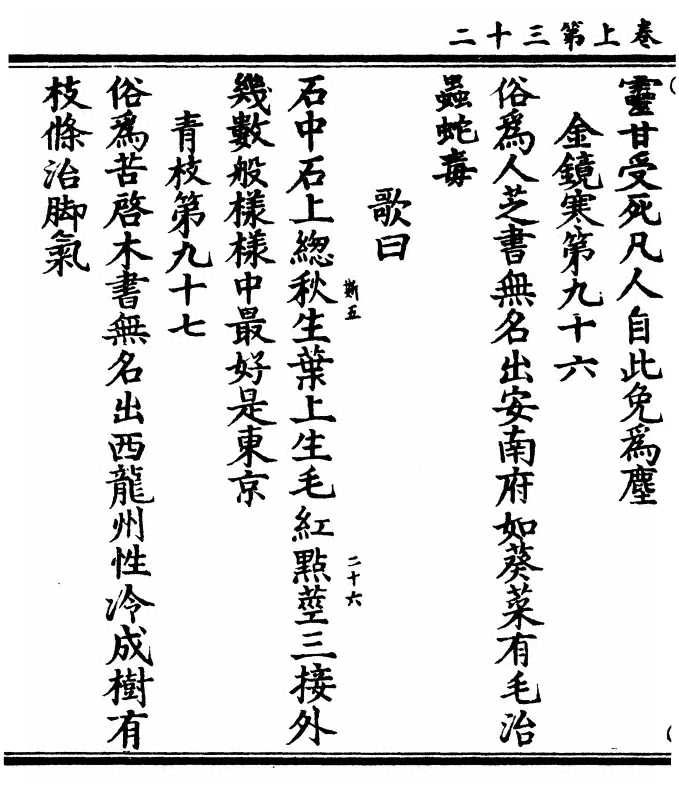 卷上第三十二
靈甘受死凡人自此免爲塵
金鏡寒第九十六
俗爲人芝書無名出安南府如葵菜有毛治
蟲蛇毒
歌曰
石中石上緫秋生葉上生毛紅點莖三接外
斯五
二十六
幾數般樣樣中最好是東京
青枝第九十七
俗爲苦啓木書無名出西龍州性冷成樹有
枝條治脚氣